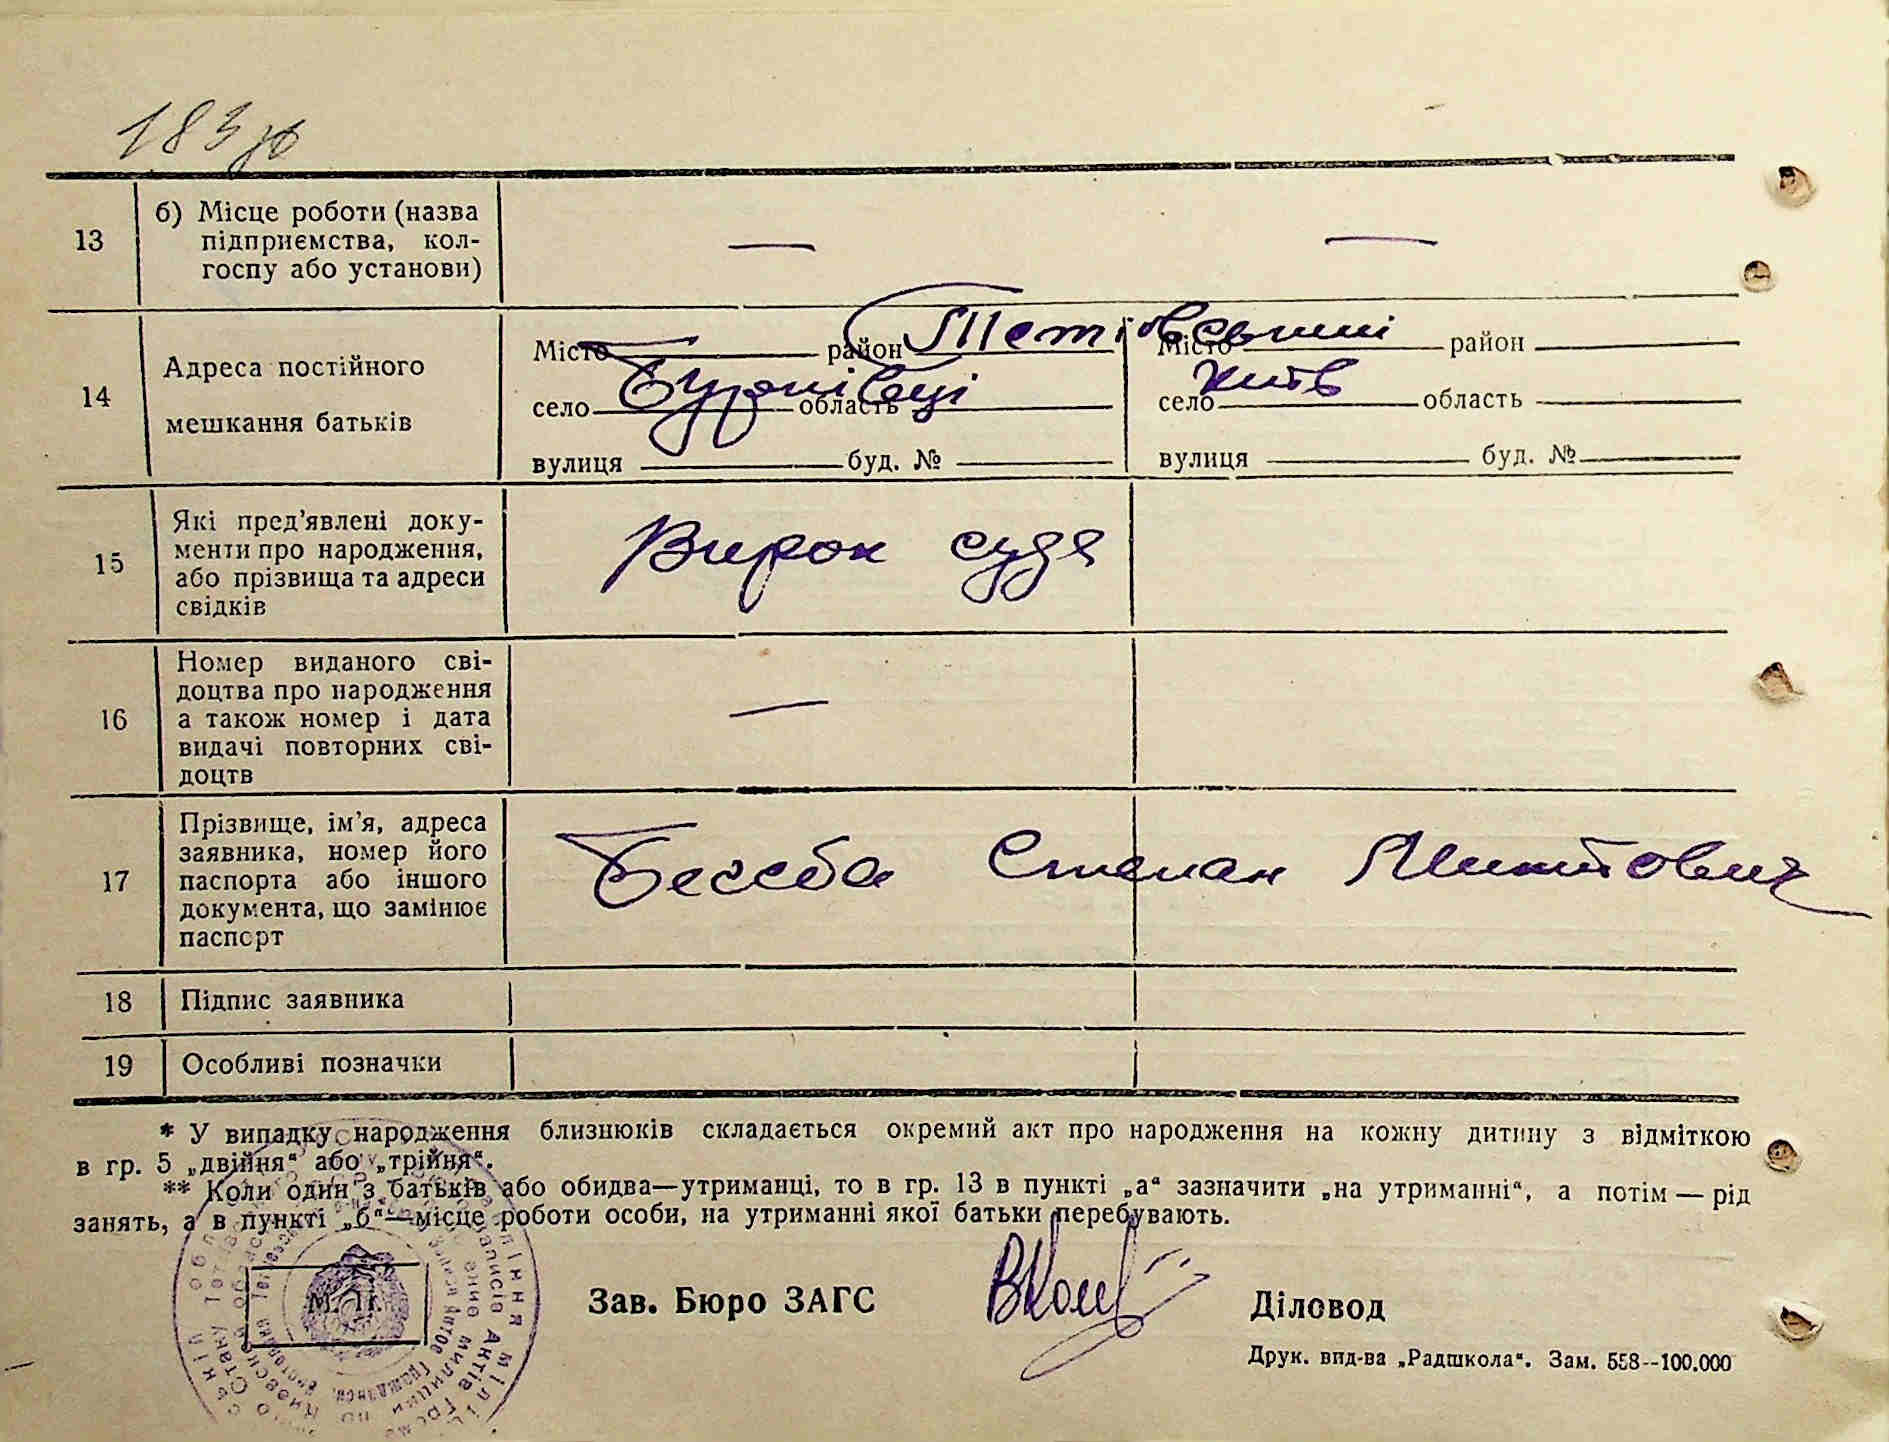 183 зв
13
б) Місце роботи (назва
підприємства, кол-
госпу або установи)
—
—
14
Адреса постійного
мешкання батьків
Місто район Тетіївський Місто район
село Бурківці область село Київ область
вулиця буд. № вулиця буд. №
15
Які пред'явлені доку-
менти про народження,
або прізвища та адреси
свідків
Вирок суда
16
Номер виданого сві-
доцтва про народження
а також номер і дата
видачі повторних сві-
доцтв
—
17
Прізвище, ім'я, адреса
заявника, номер його
паспорта або іншого
документа, що замінює
паспорт
Степан Микитович
18
Підпис заявника
19
Особливі позначки
* У випадку народження близнюків складається окремий акт про народження на кожну дитину з відміткою
в гр. 5 „двійня“ або „трійня“.
** Коли один з батьків або обидва—утриманці, то в гр. 13 в пункті „а“ зазначити „на утриманні“, а потім — рід
занять, а в пункті „б“—місце роботи особи, на утриманні якої батьки перебувають.
М. П.
Зав. Бюро ЗАГС
Діловод
Друк. вид-ва „Радшкола“. Зам. 558--100.000